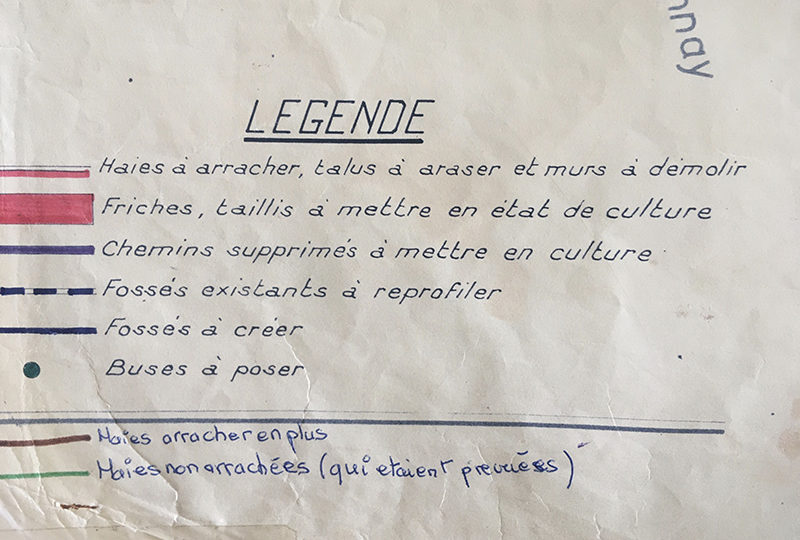 nnay
LEGENDE
Haies à arracher, talus à araser et murs à démolir
Friches, taillis à mettre en état de culture
Chemins supprimés à mettre en culture
Fossés existants à reprofiler
Fossés à créer
Buses à poser
Haies arracher en plus
Haies non arrachées (qui etaient prevuéss)